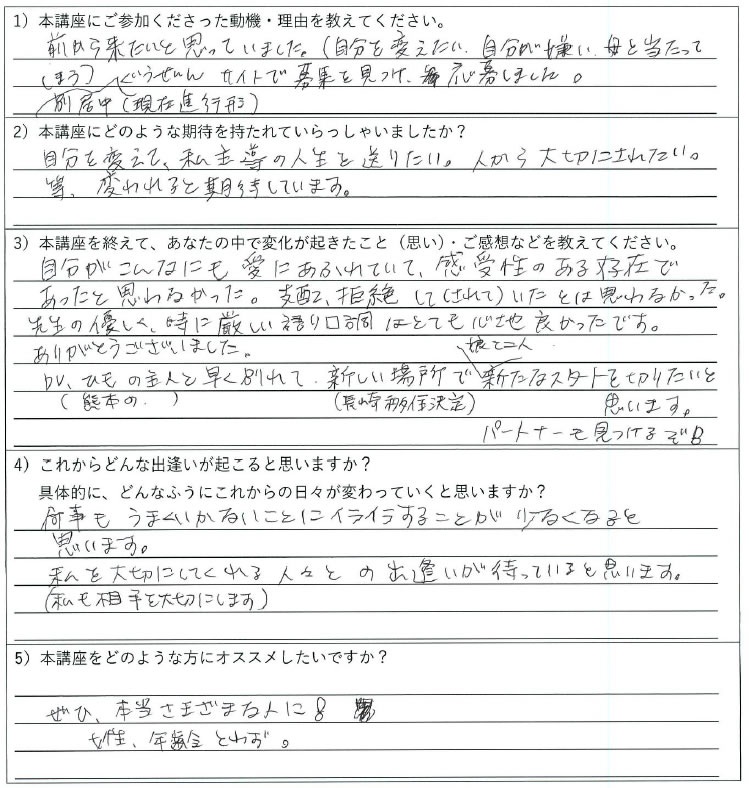 1）本講座にご参加くださった動機・理由を教えてください。
前から来たいと思っていました。（自分を変えたい、自分が嫌い、母と当たって
しまう） ぐうぜん サイトで募集を見つけ、応募しました。
別居中（現在進行形）
2）本講座にどのような期待を持たれていらっしゃいましたか？
自分を変えて、私主導の人生を送りたい。人から大切にされたい。
等、変われると期待しています。
3）本講座を終えて、あなたの中で変化が起きたこと（思い）・ご感想などを教えてください。
自分がこんなにも愛にあふれていて、感受性のある存在で
あったと思わなかった。支配、拒絶して（されて）いたとは思わなかった。
先生の優しく、時に厳しい語り口調はとても心地良かったです。
ありがとうございました。
娘と二人
DV、ひもの主人と早く別れて、新しい場所で新たなスタートを切りたいと
（熊本の、）（長崎移住決定）思います。
パートナーも見つけるぞ
4）これからどんな出逢いが起こると思いますか？
具体的に、どんなふうにこれからの日々が変わっていくと思いますか？
何事もうまくいかないことにイライラすることが少なくなると
思います。
私を大切にしてくれる人々との出逢いが待っていると思います。
（私も相手を大切にします）
5）本講座をどのような方にオススメしたいですか？
ぜひ、本当さまざまな人に
女性、年齢 とわず。